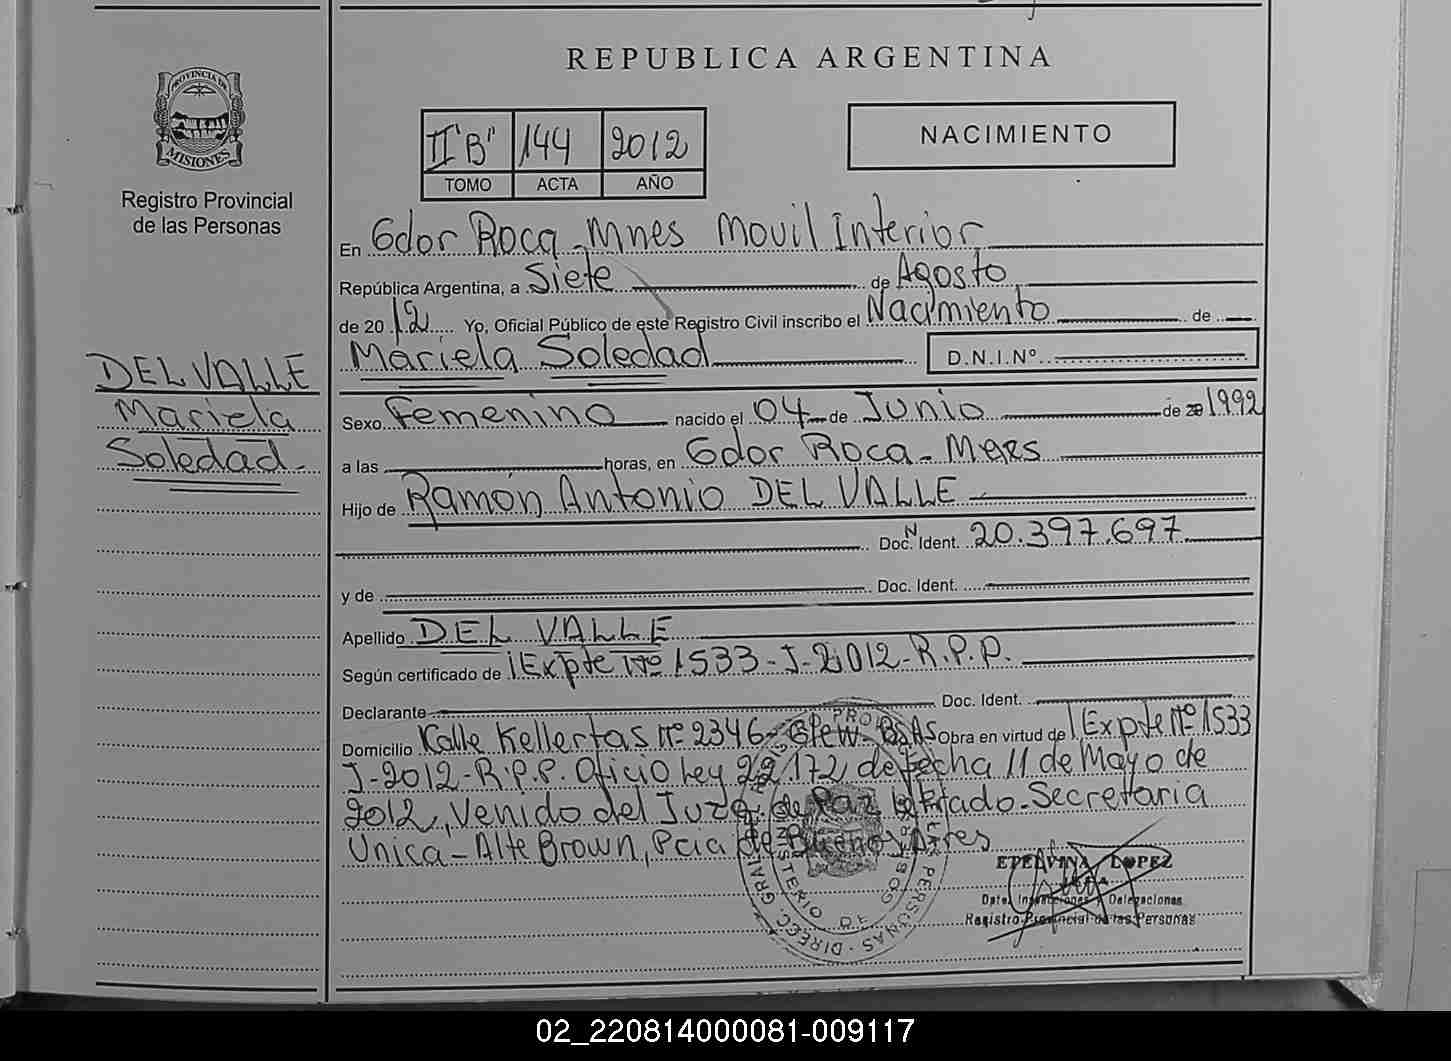 REPUBLICA ARGENTINA
PROVINCIA DE
MISIONES
Registro Provincial
de las Personas
II "B" 144 2012
TOMO ACTA AÑO
NACIMIENTO
En Gdor Roca - Mnes Movil Interior
República Argentina, a Siete de Agosto
de 2012 Yo, Oficial Público de este Registro Civil inscribo el Nacimiento de
Mariela Soledad D.N.I.Nº
DEL VALLE
Mariela
Soledad
Sexo Femenino nacido el 04 de Junio de 20 1992
a las horas, en Gdor Roca - Mnes
Hijo de Ramón Antonio DEL VALLE
Doc. N Ident. 20.397.697
y de Doc. Ident.
Apellido DEL VALLE
Según certificado de Expte Nº 1533-J-2012-R.P.P.
Declarante Doc. Ident.
Domicilio Kalle Kellertas Nº 2346 - Glew - Bs As Obra en virtud de Expte Nº 1533
J-2012-R.P.P. Oficio Ley 22.172 de fecha 11 de Mayo de
2012, Venido del Juzg. de Paz Letrado - Secretaria
Unica - Alte Brown, Pcia de Buenos Aires
LOPEZ
JEFA
Dpto. Inspecciones y Delegaciones
Registro Provincial de las Personas
02_220814000081-009117